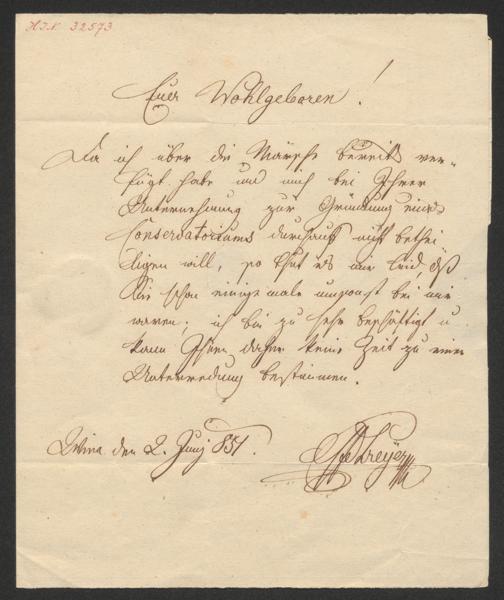 H.I.N. 32573
Euer Wohlgeboren!
Da ich über die Märsche bereits ver-
fügt habe und mich bei Ihrer
Unternehmung zur Gründung eines
Conservatoriums durchaus nicht bethei-
ligen will, so thut es mir leid, daß
Sie schon einige male umsonst bei mir
waren, ich bin zu sehr beschäftigt u
kann Ihnen daher keine Zeit zu einer
Unterredung bestimmen.
Wien den 2. Juny 851.